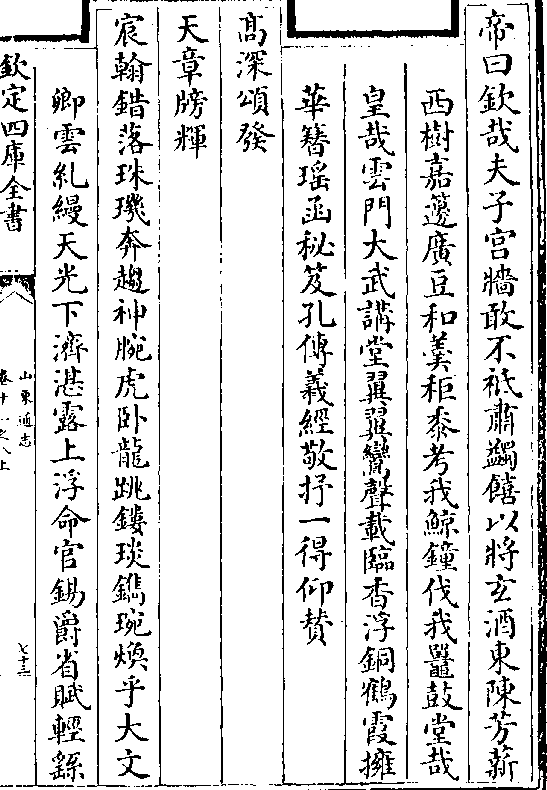 帝曰欽哉夫子宫牆敢不祗肅蠲饎以將玄酒東陳芳薪
西樹嘉籩廣豆和羮秬黍考我鯨鐘伐我鼉鼓堂哉
皇哉雲門大武講堂翼翼鸞聲載臨香浮銅鶴霞擁
華簪瑶函秘笈孔傳義經敬抒一得仰賛
髙深頌發
天章牓輝
宸翰錯落珠璣奔趨神腕虎卧龍跳鏤琰鐫琬煥乎大文
卿雲糺縵天光下濟湛露上浮命官錫爵省賦輕繇
欽定四庫全書
山東通志
卷十一之八上
七十三